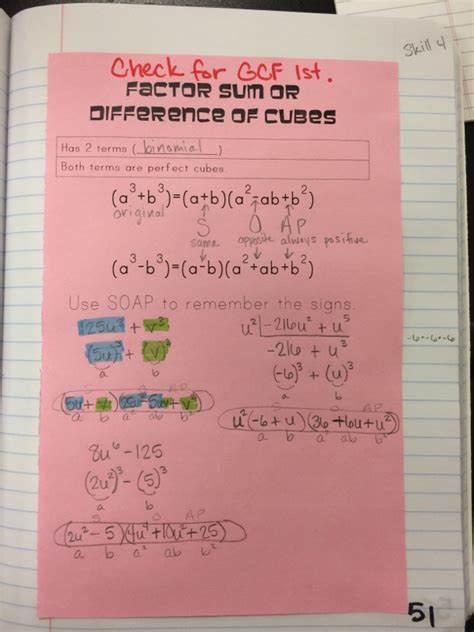 Skill 4
Check for GCF 1st.
FACTOR SUM OR
DIFFERENCE OF CUBES
Has 2 terms (binomial)
Both terms are perfect cubes.
(a³+b³)=(a+b)(a²-ab+b²)
original
S O AP
same opposite always positive
(a³-b³)=(a-b)(a²+ab+b²)
Use SOAP to remember the signs.
125u³ + v³
(5u)³ + (v)³
a b
S O AP
(5u+v)(25u²-5uv+v²)
a b a² ab b²
8u⁶-125
(2u²)³-(5)³
a b
S O AP
(2u²-5)(4u⁴+10u²+25)
a b a² ab b²
u² | -216u² + u⁵
-216 + u³
(-6)³ + (u)³
a b
u²(-6+u)(36+6u+u²)
a b a² ab b²
-6·-6·-6
51